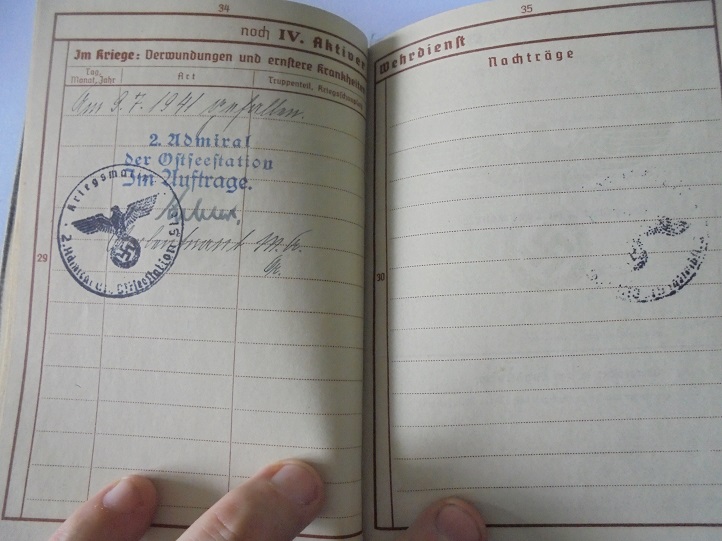 34
noch IV. Aktiver
Im Kriege: Verwundungen und ernstere Krankheiten
Tag, Monat, Jahr
Art
Truppenteil,
Am 9.7.1941 gefallen.
2. Admiral
der Ostseestation
Im Auftrage.
Kriegsmarine
2. Admiral d. Ostseestation
29
35
Wehrdienst
Nachträge
30